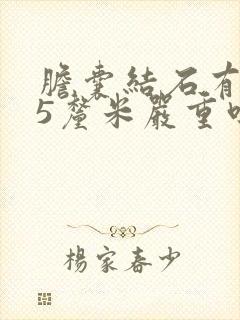 膽囊結石有
5釐米嚴重
楊家春少